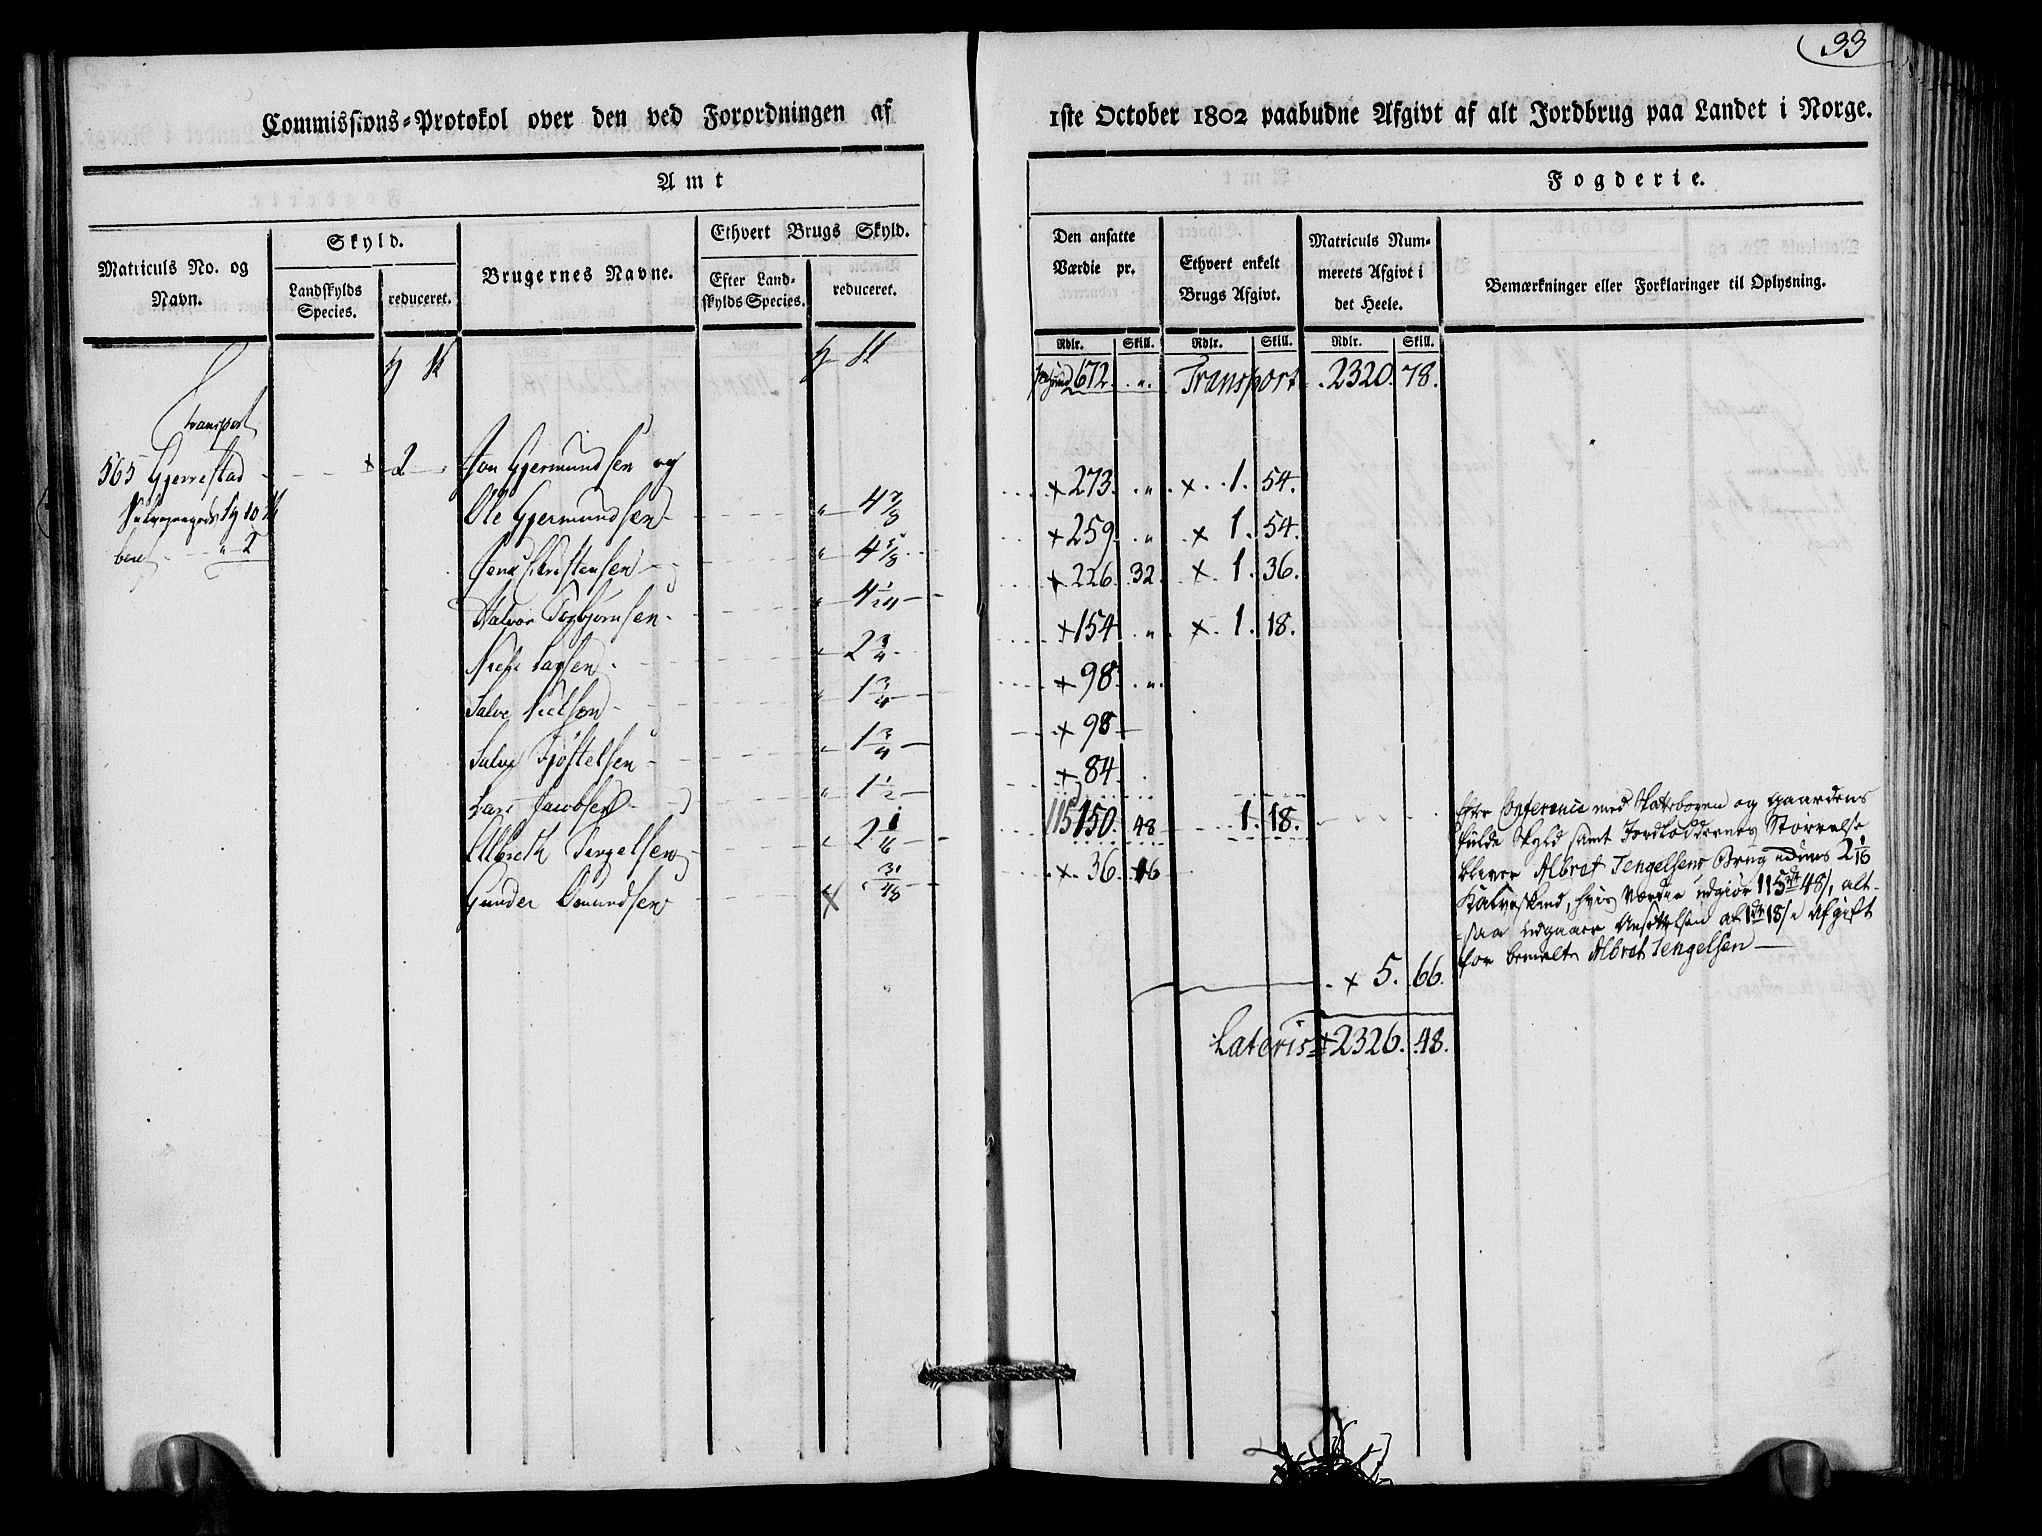 33
Commissions-Protokol over den ved Forordningen af 1ste October 1802 paabudne Afgivt af alt Jordbrug paa Landet i Norge.
Amt
Fogderie.
Matriculs No. og Navn.
Skyld.
Landskylds Species.
reduceret.
Brugernes Navne.
Ethvert Brugs Skyld.
Efter Landskylds Species.
reduceret.
Den ansatte Værdie pr.
Ethvert enkelt Brugs Afgivt.
Matriculs Nummerets Afgivt i det Heele.
Bemærkninger eller Forklaringer til Oplysning.
Rdlr. Skill. Rdlr. Skill. Rdlr. Skill.
672. " Transport 2320. 78.
Transport
565 Gjerrestad x 2 Jon Gjermundsen og
Ole Gjermundsen " 4 7/8 x 273. " x 1. 54.
Jens Christensen " 4 5/8 x 259. " x 1. 54.
Halvor Torbjørnsen " 4 1/24 x 226. 32. x 1. 36.
Niels Larsen " 2 3/4 x 154 " x 1. 18.
Salve Nielsen " 1 3/4 x 98 "
Salve Kjøstelsen " 1 3/4 x 98
Lars Jacobsen " 1 1/2 x 84
Albreth Tengelsen " 2 1/16 115 150. 48 1. 18.
Gunder Omundsen 31/48 x 36. 16
Efter Conference med Skatebogen og Gaardens
fulde Skyld samt Jordloddernes Størrelse
bliver Albret Tengelsens Brug 2 1/16
Kalveskind, hvis Værdie udgiør 115 rd 48 s, alt-
saa udgaaer Ansættelsen af 1 rd 18 s i Afgift
for bemelte Albret Tengelsen
x 5. 66.
Lateris x 2326. 48.